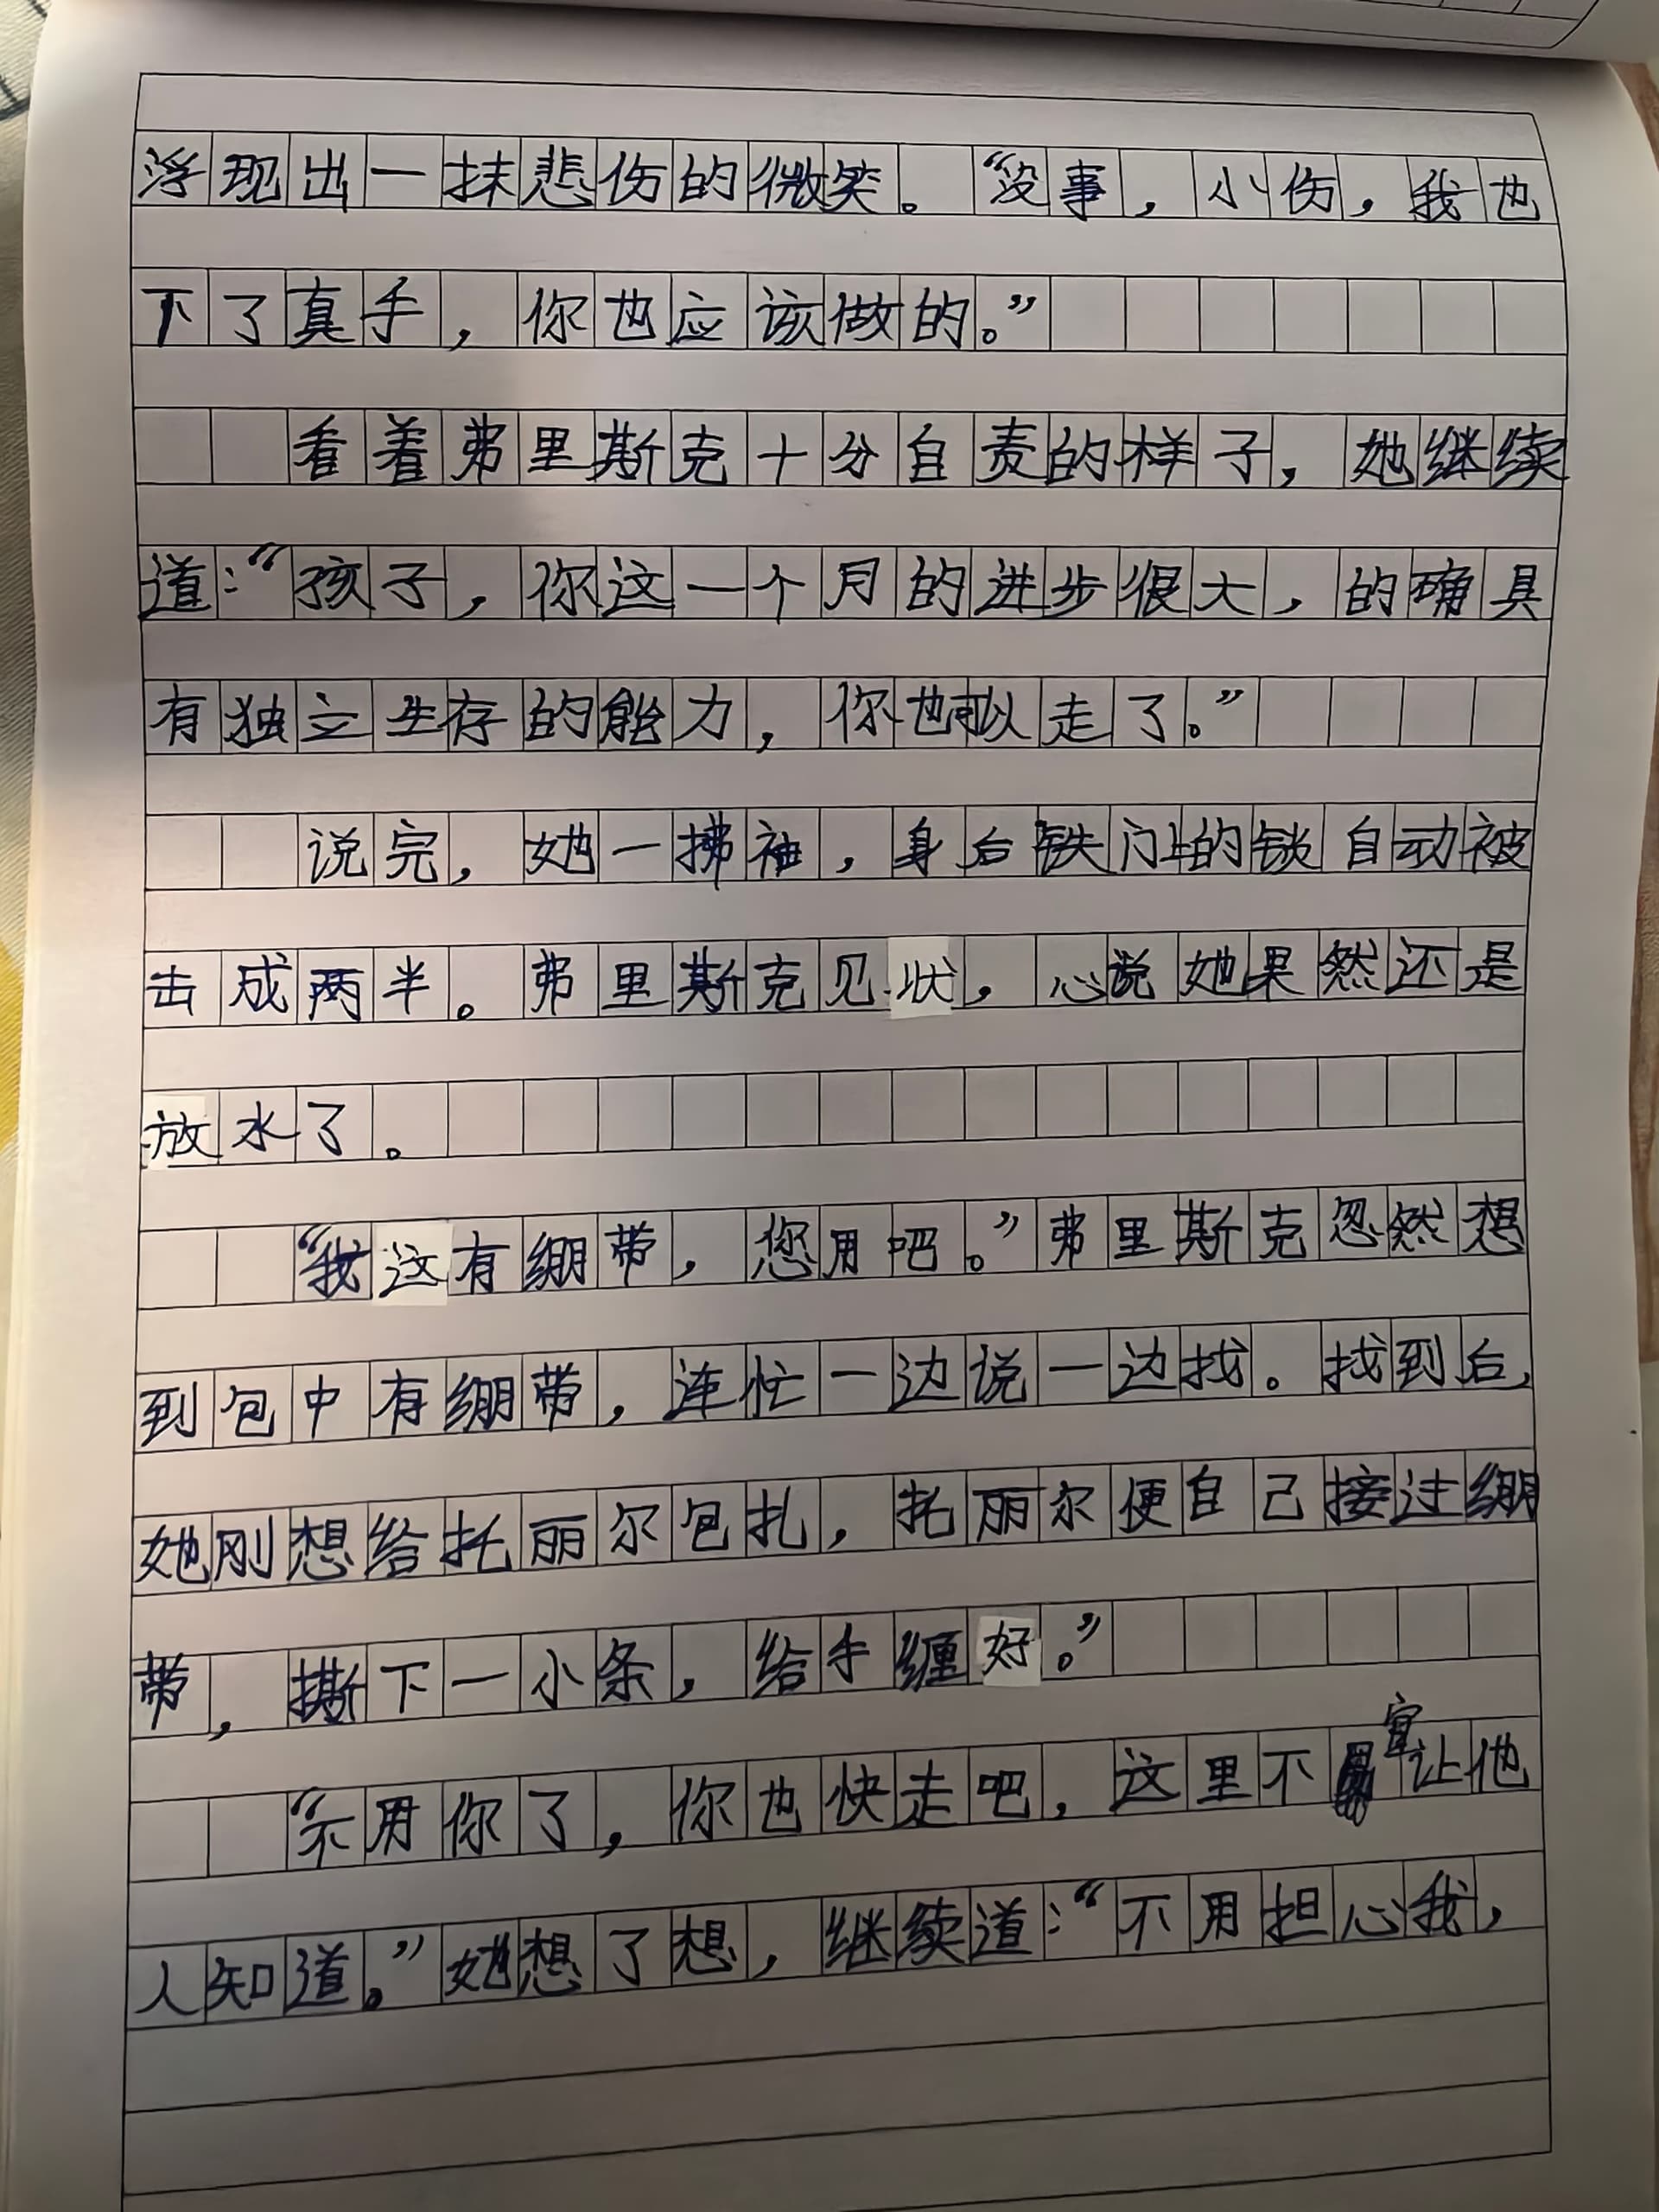 浮现出一抹悲伤的微笑。“没事，小伤，我也
下了真手，你也应该做的。”
看着弗里斯克十分自责的样子，她继续
道：“孩子，你这一个月的进步很大，的确具
有独立生存的能力，你也可以走了。”
说完，她一拂袖，身后铁门上的锁自动被
击成两半。弗里斯克见状，心说她果然还是
放水了。
“我这有绷带，您用吧。”弗里斯克忽然想
到包中有绷带，连忙一边说一边找。找到后，
她刚想给托丽尔包扎，托丽尔便自己接过绷
带，撕下一小条，给手缠好。”
“不用你了，你也快走吧，这里不宜让他
人知道。”她想了想，继续道：“不用担心我，